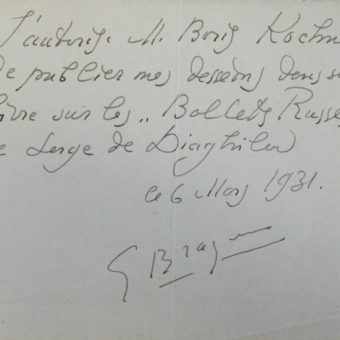 J'autorise M. Boris Kochn
de publier mes dessins dans s
livre sur les „ Ballets Russe
de Serge de Diaghilew
le 6 Mars 1931.
G Braque